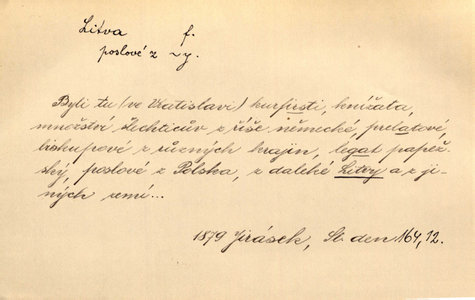 Litva f.
poslové z ~y.
Byli tu (ve Vratislavi) kurfirsti, knížata,
množství šlechticův z říše německé, prelátové,
biskupové z různých krajin, legat papež-
ský, poslové z Polska, z daleké Litvy a z ji-
ných zemí...
1879 Jirásek, St. den 164, 12.